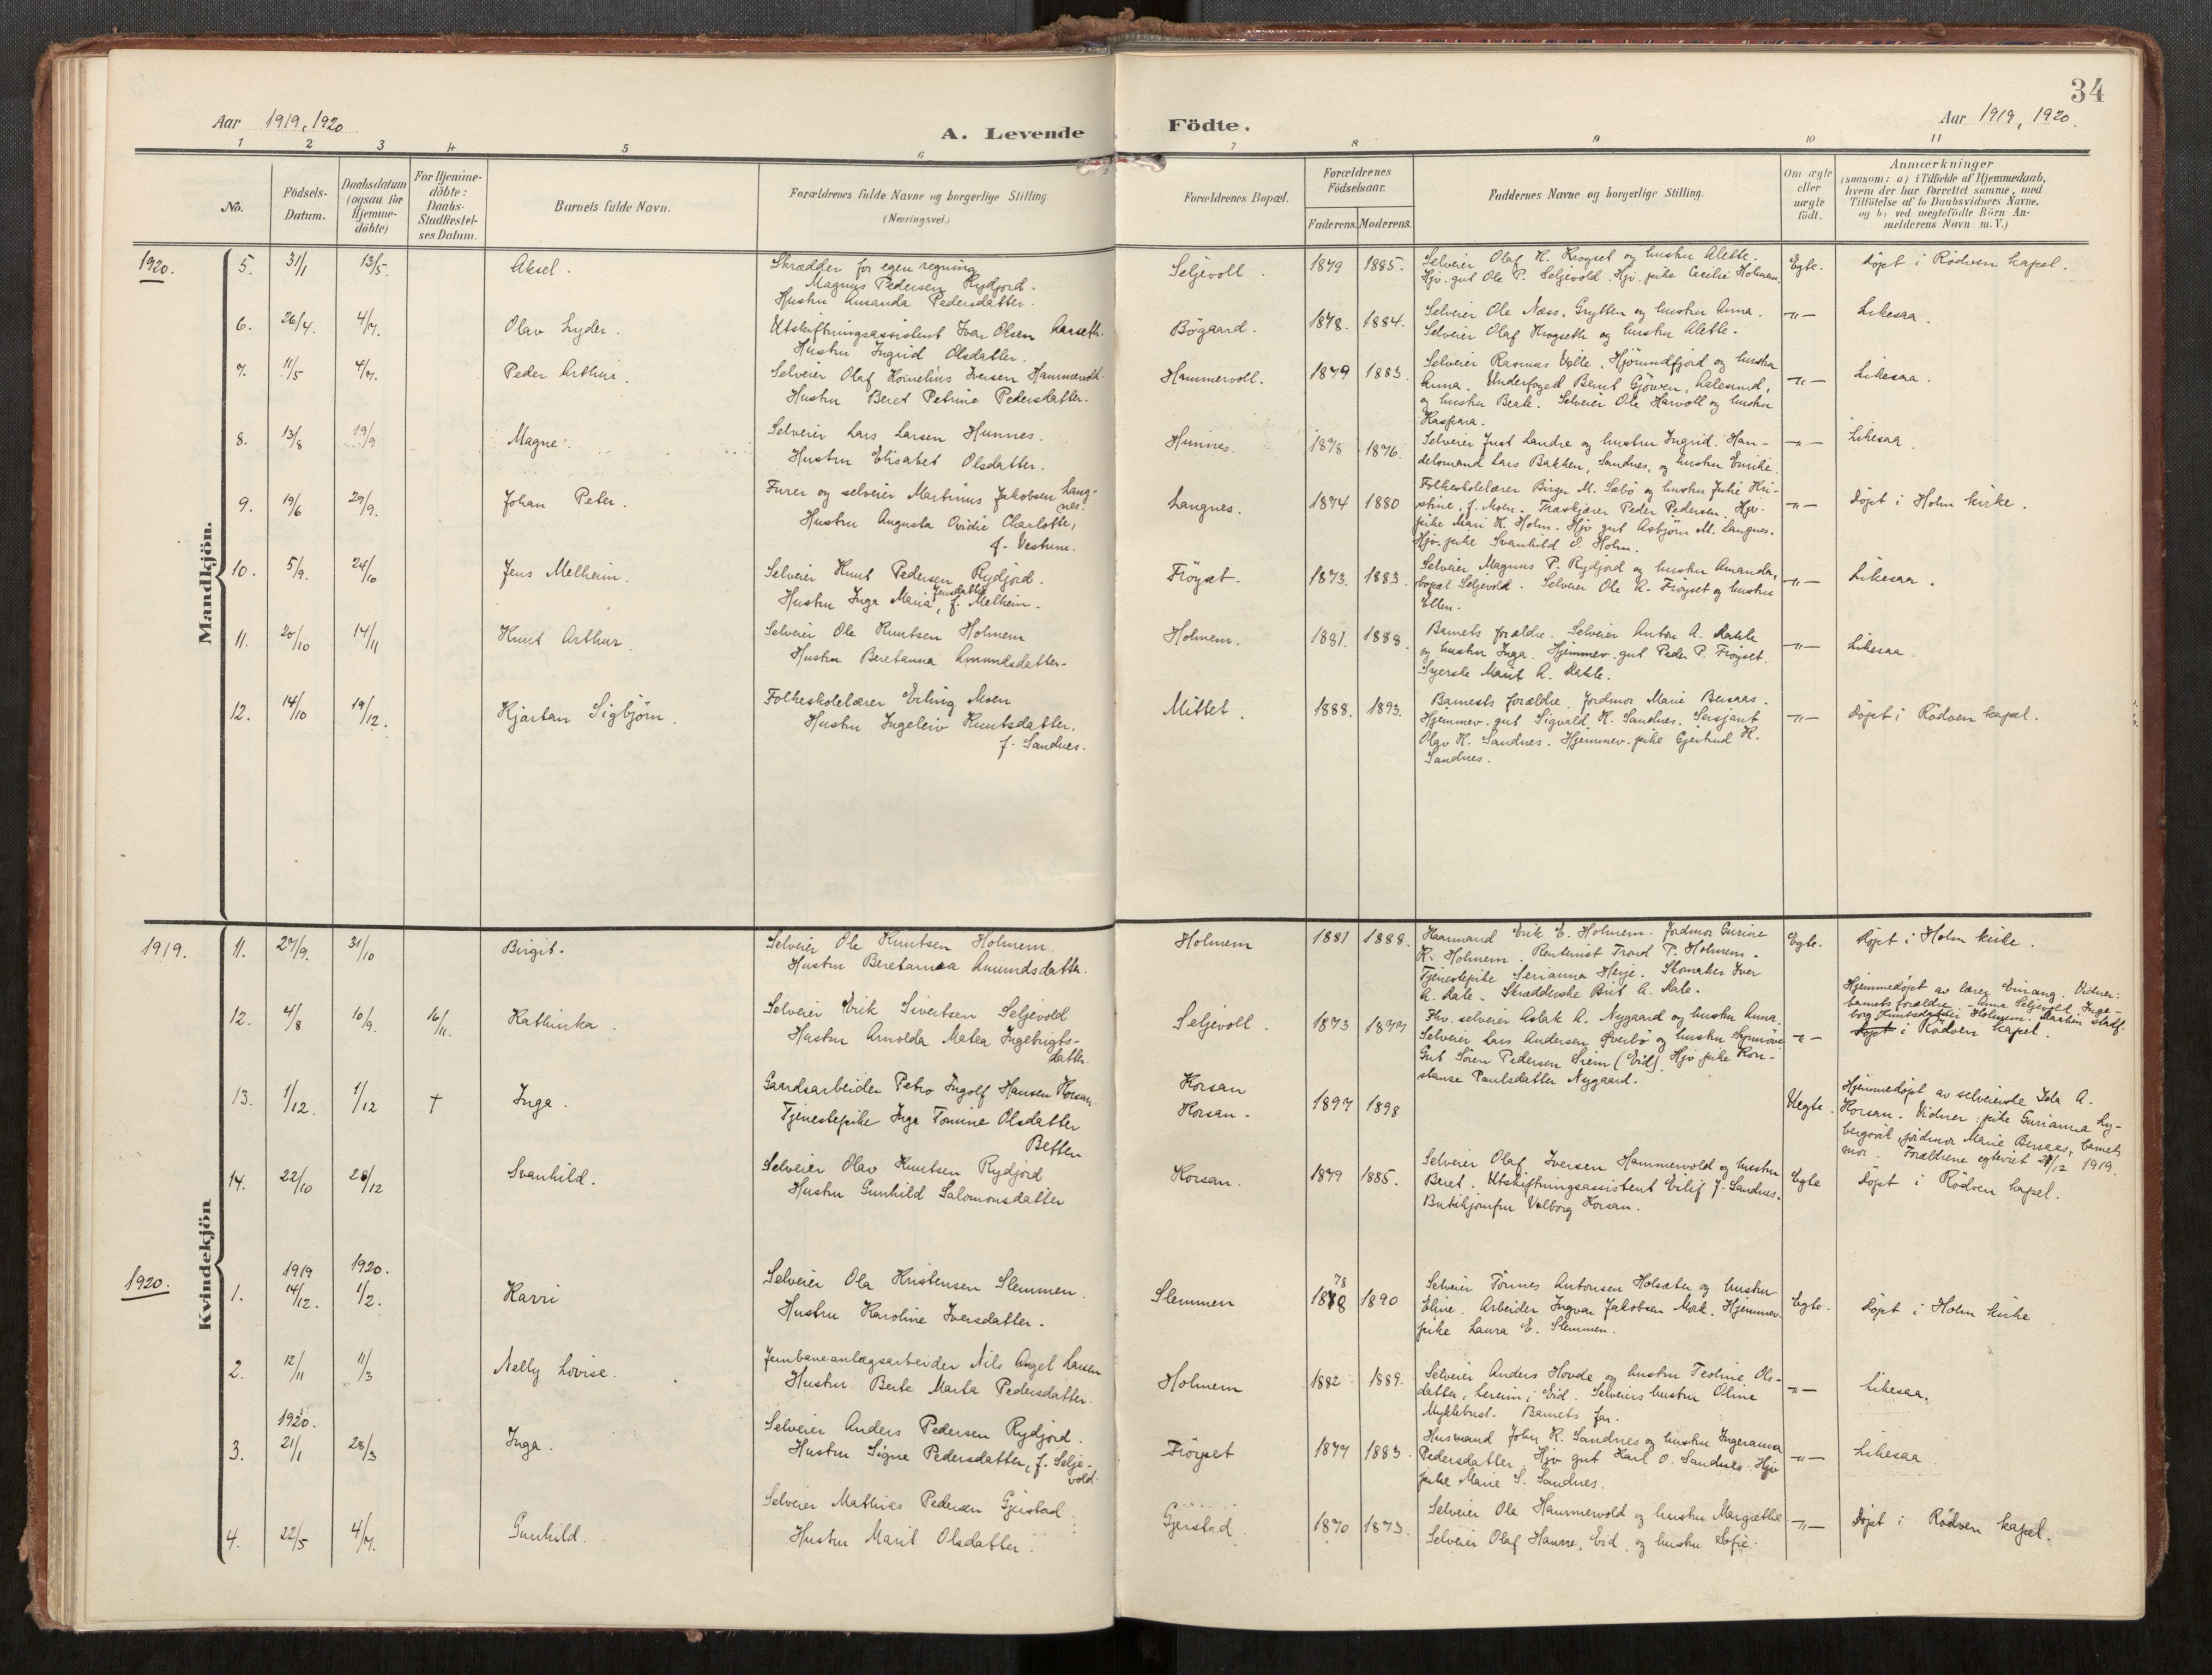 34
Aar 1919, 1920
A. Levende Födte.
Aar 1919, 1920.
1 2 3 4 5 6 7 8 9 10 11
No.
Födsels-Datum.
Daabsdatum (ogsaa for Hjemme-döbte)
For Hjemme-döbte: Daabs-Stadfæstel-ses Datum.
Barnets fulde Navn.
Forældrenes fulde Navne og borgerlige Stilling (Næringsvei.)
Forældrenes Bopæl.
Forældrenes Födselsaar.
Faderens. Moderens.
Faddernes Navne og borgerlige Stilling.
Om ægte eller uægte födt.
Anmærkninger
(saasom: a) i Tilfælde af Hjemmedaab, hvem der har forrettet samme, med Tilföielse af to Daabsvidners Navne, og b) ved uægtefödte Börn Anmelderens Navn m. V.)
Mandkjön.
1920.
5. 31/1 13/5. Aksel.
Skrædder for egen regning
Magnus Pedersen Rydjord.
Hustru Amanda Pedersdatter.
Seljevoll. 1879 1885.
Selveier Olaf K. Krogset og hustru Alette.
Hjv. gut Ole P. Seljevold. Hjv. pike Cecilie Holmem.
Egte. Döpt i Rödven kapel.
6. 26/4. 4/7. Olav Lyder.
Utskiftningsassistent Ivar Olsen Aarseth.
Hustru Ingrid Olsdatter.
Bögaard. 1878. 1884.
Selveier Ole Næss, Grytten og hustru Anna.
Selveier Olaf Krogseth og hustru Alette.
-"- Likesaa.
7. 11/5 4/7. Peder Arthur.
Selveier Olaf Kornelius Iversen Hammervold.
Hustru Beret Petrine Pedersdatter.
Hammervoll. 1879 1883.
Selveier Rasmus Velle, Hjörundfjord og hustru
Anna. Underfoged Bernt Gjöwen, Aalesund,
og hustru Beate. Selveier Ole Harvoll og hustru
Kaspara.
-"- Likesaa.
8. 13/8 19/9 Magne.
Selveier Lars Larsen Hunnes.
Hustru Elisabet Olsdatter.
Hunnes. 1878 1876.
Selveier Just Landre og hustru Ingrid. Han-
delsmand Lars Bakken, Sandnes, og hustru Enrike.
-"- Likesaa
9. 19/6 29/9. Johan Peter.
Furer og selveier Martinus Jakobsen Lang-
nes.
Hustru Augusta Ovidie Charlotte,
f. Vestrum.
Langnes. 1874 1880
Folkeskolelærer Birger M. Sæbö og hustru Julie Kri-
stine, f. Moen. Træskjærer Peder Pedersen. Hjv.
pike Mari K. Holm. Hjv gut Asbjörn M. Langnes.
Hjv. pike Svanhild S. Holm.
-"- Döpt i Holm kirke.
10. 5/9. 24/10 Jens Melheim.
Selveier Knut Pedersen Rydjord.
Hustru Inga Maria Jensdatter, f. Melheim.
Fröyset. 1873. 1883.
Selveier Magnus P. Rydjord og hustru Amanda,
bopæl Seljevold. Selveier Ole K. Fröyset og hustru
Ellen.
-"- Likesaa.
11. 20/10 14/11 Knut Arthur.
Selveier Ole Knutsen Holmem
Hustru Beretanna Amundsdatter.
Holmem. 1881. 1888.
Barnets forældre. Selveier Anton A. Dahle
og hustru Inga. Hjemmev. gut Peder P. Fröyset.
Syerske Marit A. Dahle.
-"- Likesaa.
12. 14/10 19/12. Kjartan Sigbjörn.
Folkeskolelærer Erling Moen
Hustru Ingeleiv Knutsdatter,
f. Sandnes.
Mittet. 1888. 1893.
Barnets forældre. Jordmor Marie Bersaas.
Hjemmev. gut Sigvald K. Sandnes. Sersjant
Olav K. Sandnes. Hjemmev. pike Gjertrud K.
Sandnes.
-"- Döpt i Rödven kapel.
Kvindekjön
1919.
11. 27/9. 31/10 Birgit.
Selveier Ole Knutsen Holmem.
Hustru Beretanna Amundsdatter.
Holmem 1881 1888.
Haarmand Erik E. Holmem. Jordmor Gurine
K. Holmem. Rentenist Trond P. Holmem.
Tjenestepike Serianna Heije. Skomaker Iver
A. Dale. Skrædderske Brit A. Dale.
Egte. Döpt i Holm kirke.
12. 4/8 10/9. 16/11. Kathinka.
Selveier Erik Sivertsen Seljevold
Hustru Arnolda Matea Ingebrigts-
datter.
Seljevoll. 1873 1877
Fhv. selveier Aslak A. Nygaard og hustru Anna.
Selveier Lars Andersen Överbö og hustru Synnöve
Gut Sören Pedersen Siem (Eid). Hjv pike Kon-
stanse Paulsdatter Nygaard.
-"- Hjemmedöpt av lærer Einang. Vidner:
barnets forældre. - Anna Seljevold. Inge-
borg Knutsdatter Holmem. Daaben stadf.
Döpt i Rödven kapel.
13. 1/12. 1/12 † Inga.
Gaardsarbeider Petro Ingolf Hansen Korsan.
Tjenestepike Inga Tomine Olsdatter
Betten
Korsan
Korsan. 1897 1898
Uegte. Hjemmedöpt av selveierske Ida A.
Korsan. Vidner: pike Gurianna Ly-
bergsvik, jordmor Marie Bersaas, barnets
mor. Forældrene egteviet 21/12 1919.
14. 22/10 26/12 Svanhild.
Selveier Olav Knutsen Rydjord
Hustru Gunhild Salomonsdatter
Korsan. 1879 1885.
Selveier Olaf Iversen Hammervold og hustru
Beret. Utskiftningsassistent Eilif J. Sandnes.
Butikjomfru Valborg Korsan.
Egte Döpt i Rödven kapel.
1920.
1919 1920.
1. 14/12. 1/2. Karri
Selveier Ola Kristensen Slemmen.
Hustru Karoline Iversdatter.
Slemmen 78 1878 1890
Selveier Tönnes Antonsen Holsæter og hustru
Eline. Arbeider Ingvar Jakobsen Mork. Hjemmev.
pike Laura E. Slemmen.
Egte. Döpt i Holm kirke.
2. 12/11 11/3 Nelly Lovise.
Jernbaneanlægsarbeider Nils Angel Larsen
Hustru Berte Marta Pedersdatter.
Holmem 1882 1889.
Selveier Anders Hovde og hustru Teoline Ols-
datter, Lereim i Eid. Selveiers hustru Oline
Myklebust. Barnets far.
-"- Likesaa.
1920.
3. 21/1 28/3 Inga.
Selveier Anders Pedersen Rydjord.
Hustru Signe Pedersdatter, f. Selje-
vold.
Fröyset 1877 1883.
Husmand John K. Sandnes og hustru Ingeranna
Pedersdatter. Hjv gut Karl O. Sandnes. Hjv
pike Marie S. Sandnes.
-"- Likesaa.
4. 22/5 4/7. Gunhild.
Selveier Mathias Pedersen Gjerstad
Hustru Marit Olsdatter.
Gjerstad 1870 1873.
Selveier Ole Hammervold og hustru Margrethe
Selveier Olaf Hamre, Eid, og hustru Sofie.
-"- Döpt i Rödven kapel.